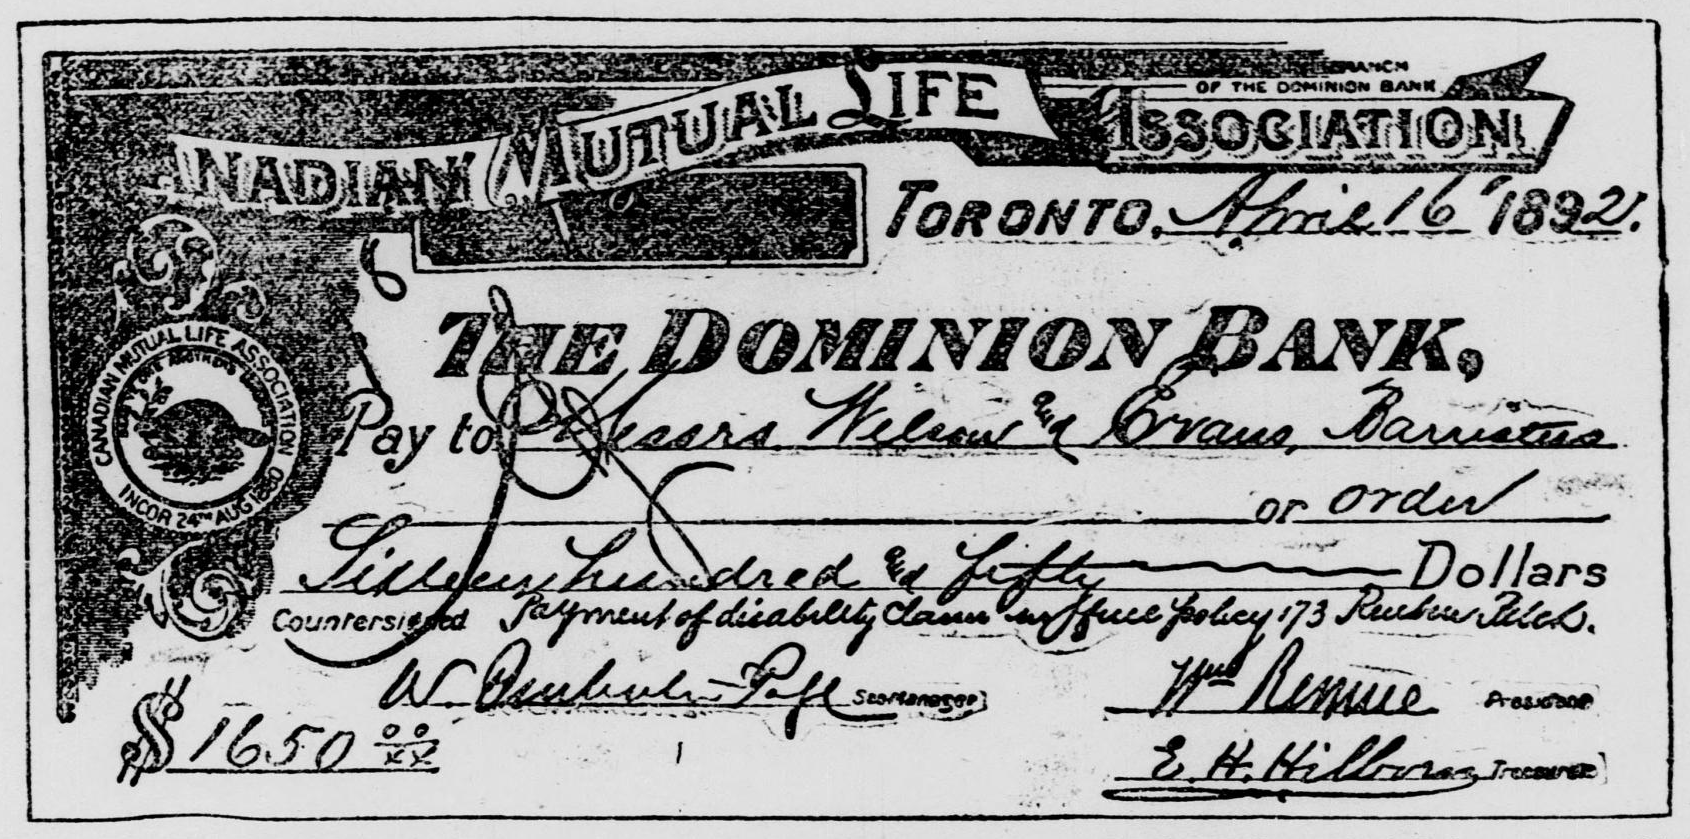 BRANCH
OF THE DOMINION BANK
ANADIAN MUTUAL LIFE ASSOCIATION.
TORONTO, April 16" 1892.
THE DOMINION BANK,
Pay to Messrs. Wilson and Evans, Barristers
or order
Sixteen hundred and fifty Dollars
Countersigned Payment of disability Claim in full policy 173 Reuben
W. Page Sec. Manager
Wm Rennie President
E. H. Hilborn, Treasurer
$ 1650 00/xx
CANADIAN MUTUAL LIFE ASSOCIATION
BEAR YE ONE ANOTHERS
INCOR 24TH AUG 1880